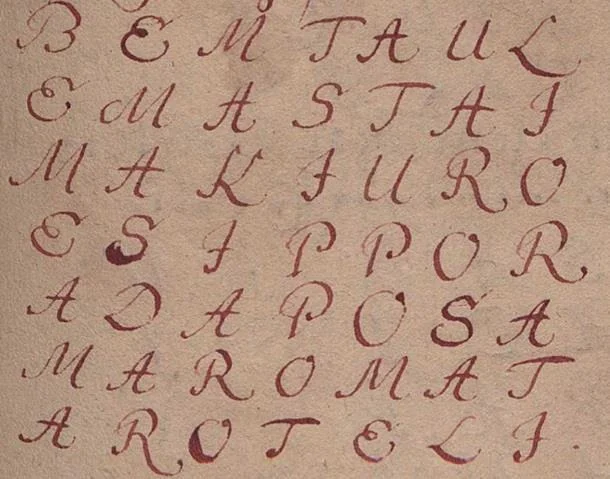 B E M T A U L
E M A S T A I
M A K I U R O
E S I P P O R
A D A P O S A
M A R O M A T
A R O T E L I .